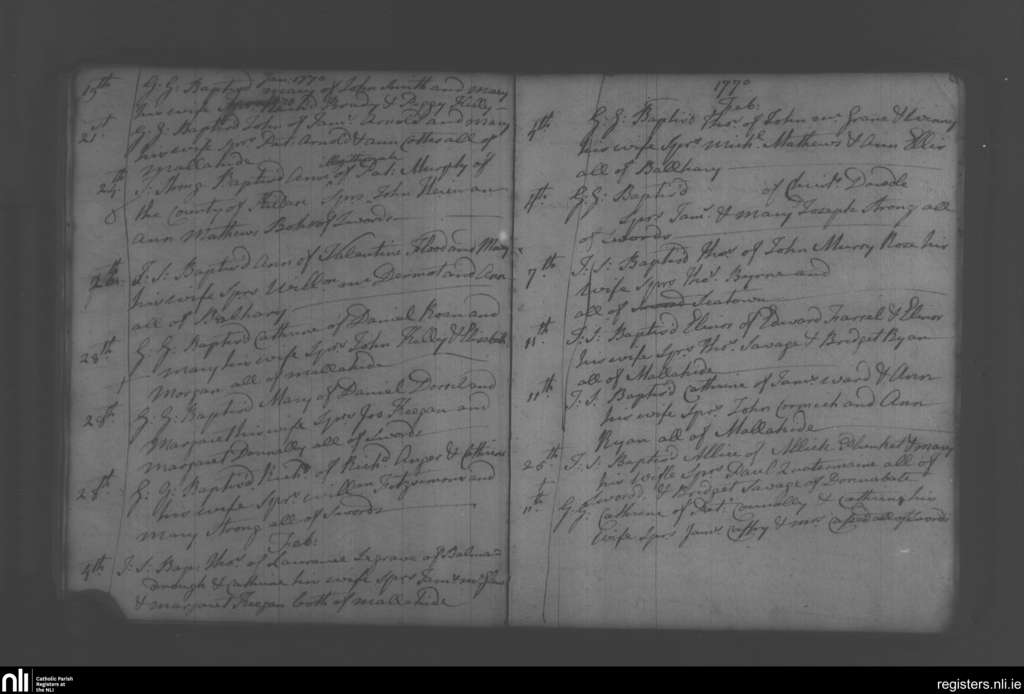 Jan: 1770
15th G: G: Baptisd Mary of John Smith and Mary
his wife Sprs Brondy & Peggy Kelly
21st G: G: Baptisd John of Jams Arnold and Mary
his wife Sprs Pat: Arnold & Ann Cotter all of
Mallahide
24th J: Strong Baptisd Ann of Pat: Murphy of
the County of Sprs John
Ann Mathews Both of Swords
J: S: Baptisd Ann of Valentine Flood and Mary
his wife Sprs Willm mc Dermot and Ann
all of Balhary
28th G: G: Baptisd Catherine of Daniel Roan and
Mary his wife Sprs John Kelly & Elisabeth
Morgan all of Mallahide
28th G: G: Baptisd Mary of Daniel and
Margaret his wife Sprs Jos Keegan and
Margaret Donnelly all of Swords
28th G: G: Baptisd Richd of Richd Anger & Catherine
his wife Sprs Willm Fitzsimons and
Mary Strong all of Swords
Feb:
4th J: S: Bap: Thos of Laurance Segrave of
& Catherine his wife Sprs
& Margaret Keegan both of Mallahide
1770
Feb:
4th G: G: Baptisd Thos of John mc Grane &
his wife Sprs Michl Mathews & Ann Ellis
all of Balhary
4th G: G: Baptisd of Christr Dowdle
Sprs Jams & Mary Joseph Strong all
of Swords
7th J: S: Baptisd Thos of John Murry Rose his
wife Sprs Thos Byrne and
all of Seatown
11th J: S: Baptisd Elinor of Edward Farrel & Elinor
his wife Sprs Thos Savage & Bridget Ryan
all of Mallahide
11th J: S: Baptisd Catherine of Jams Ward & Ann
his wife Sprs John Cormick and Ann
Ryan all of Mallahide
25th J: S: Baptisd Allice of Allick Plunket & Mary
his wife Sprs Paul Quatermaine all of
Swords & Bridget Savage of Donnabate
11th G: G: Catherine of Pat: Connolly & Catherine his
wife Sprs Jams & all of Swords
nli Catholic Parish
Registers at
the NLI
registers.nli.ie